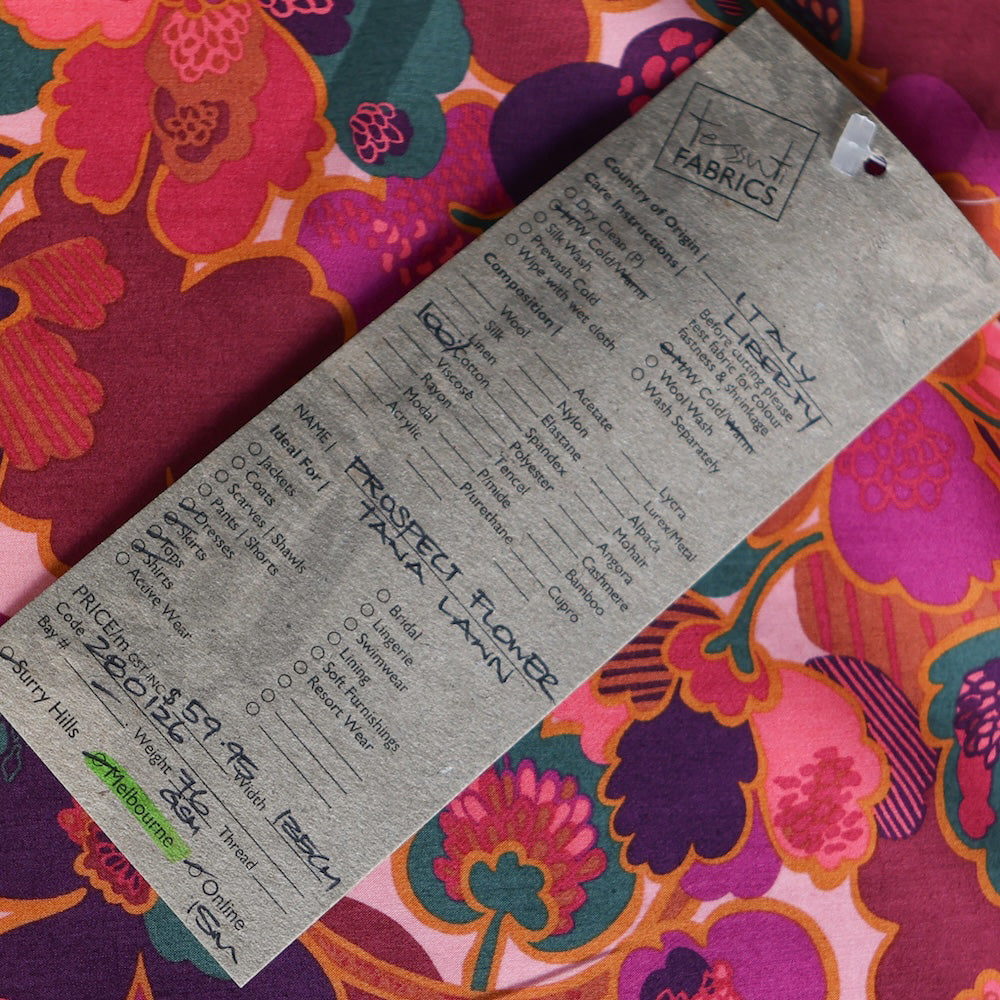 Tessuti
FABRICS
Country of Origin | ITALY
LIBERTY
Care Instructions |
Before cutting please
test fabric for colour
fastness & shrinkage
Dry Clean (P)
H/W Cold/Warm
Silk Wash
Prewash Cold
Wipe with wet cloth
M/W Cold/Warm
Wool Wash
Wash Separately
Composition |
Wool
Silk
Linen
100% Cotton
Viscose
Rayon
Modal
Acrylic
Acetate
Nylon
Elastane
Spandex
Polyester
Tencel
P/mide
P/urethane
Lycra
Lurex/Metal
Alpaca
Mohair
Angora
Cashmere
Bamboo
Cupro
NAME | PROSPECT FLOWER
TANA LAWN
Ideal For |
Jackets
Coats
Scarves | Shawls
Pants | Shorts
Dresses
Skirts
Tops
Shirts
Active Wear
Bridal
Lingerie
Swimwear
Lining
Soft Furnishings
Resort Wear
PRICE/m GST INC $59.95
Code 280126
Bay # -
Weight 76 GSM
Width 135cm
Thread
Surry Hills
Melbourne
Online
15m